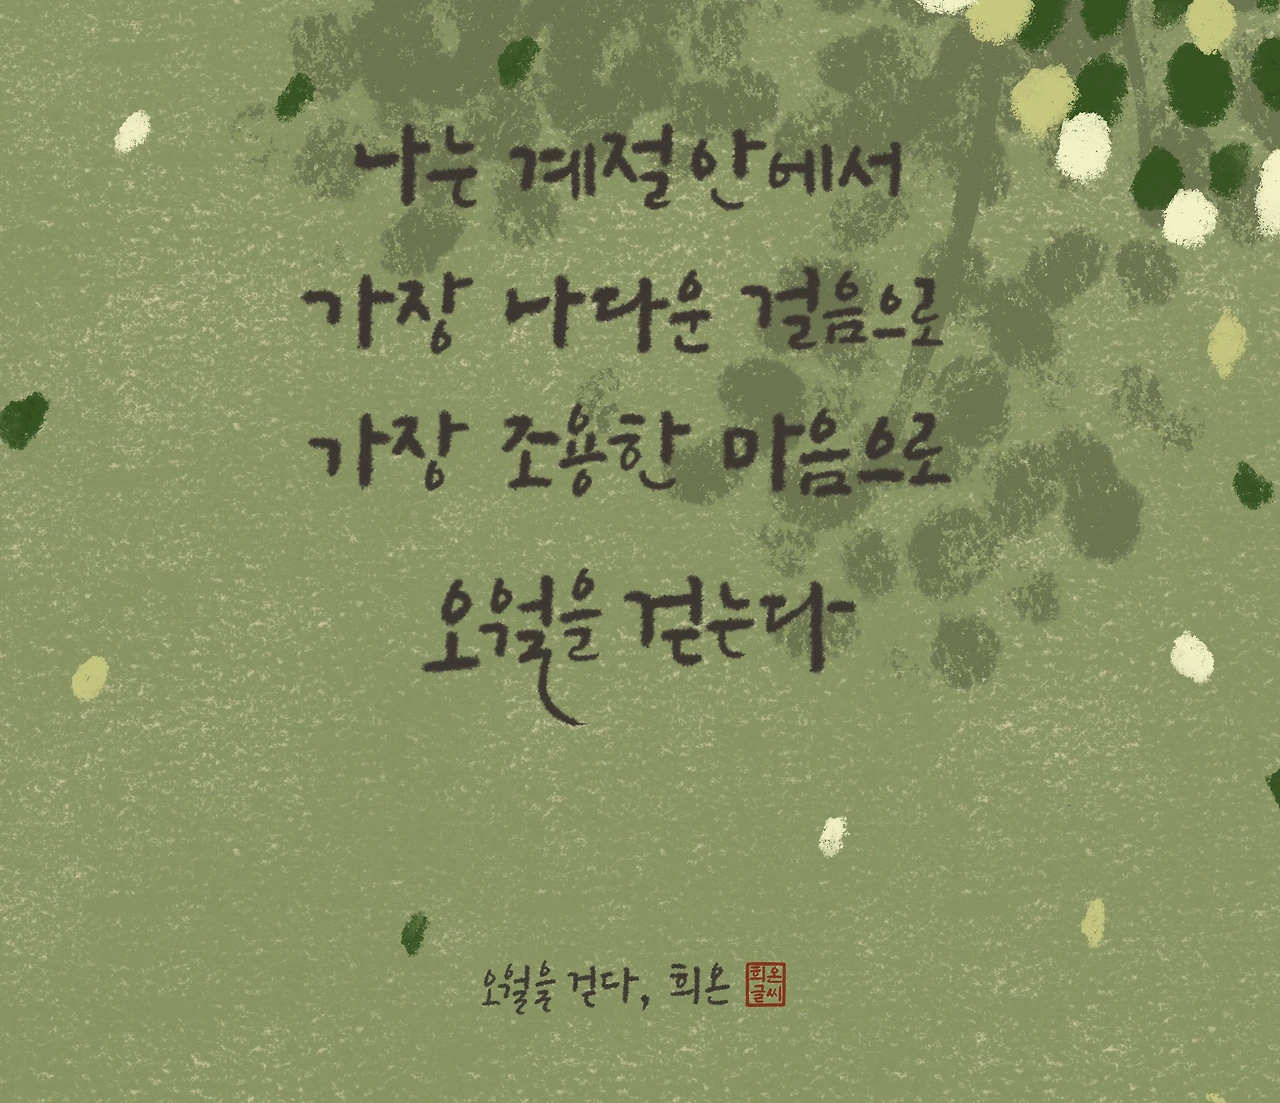 나는 계절 안에서
가장 나다운 걸음으로
가장 조용한 마음으로
오월을 걷는다
오월을 걷다, 희온
희온
글씨